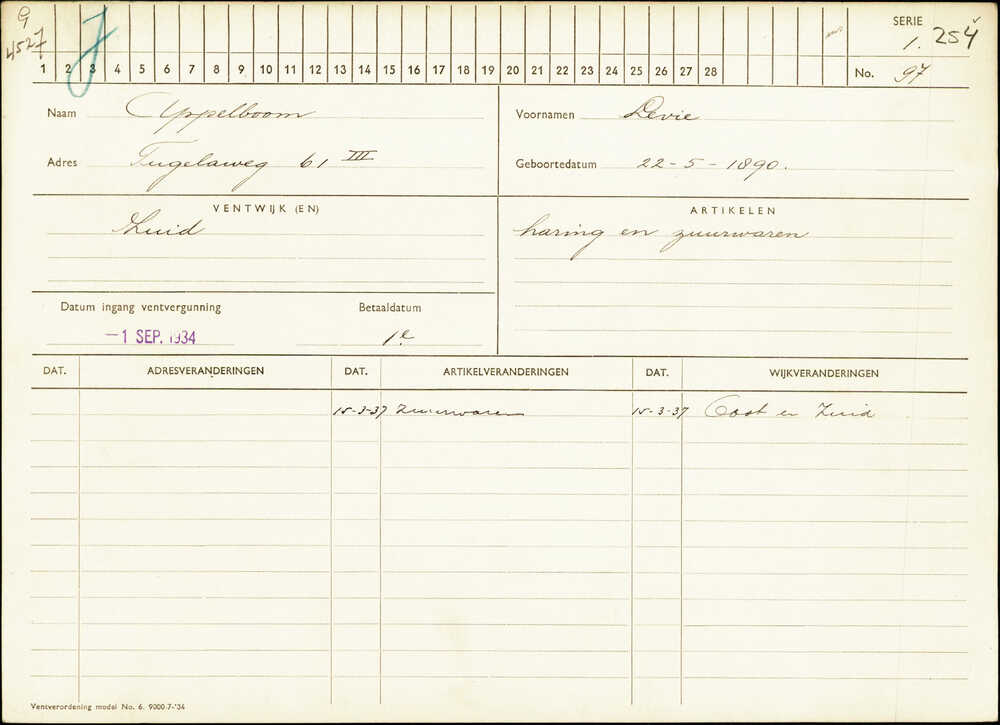 G
4527
J
SERIE
1. 254
1 2 3 4 5 6 7 8 9 10 11 12 13 14 15 16 17 18 19 20 21 22 23 24 25 26 27 28
No. 97
Naam Appelboom
Voornamen Levie
Adres Tugelaweg 61 III
Geboortedatum 22-5-1890.
VENTWIJK (EN)
ARTIKELEN
Zuid
haring en zuurwaren
Datum ingang ventvergunning
Betaaldatum
-1 SEP. 1934
1e
DAT. ADRESVERANDERINGEN DAT. ARTIKELVERANDERINGEN DAT. WIJKVERANDERINGEN
15-3-37 Zuurwaren 15-3-37 Oost en Zuid
Ventverordening model No. 6. 9000-7-'34